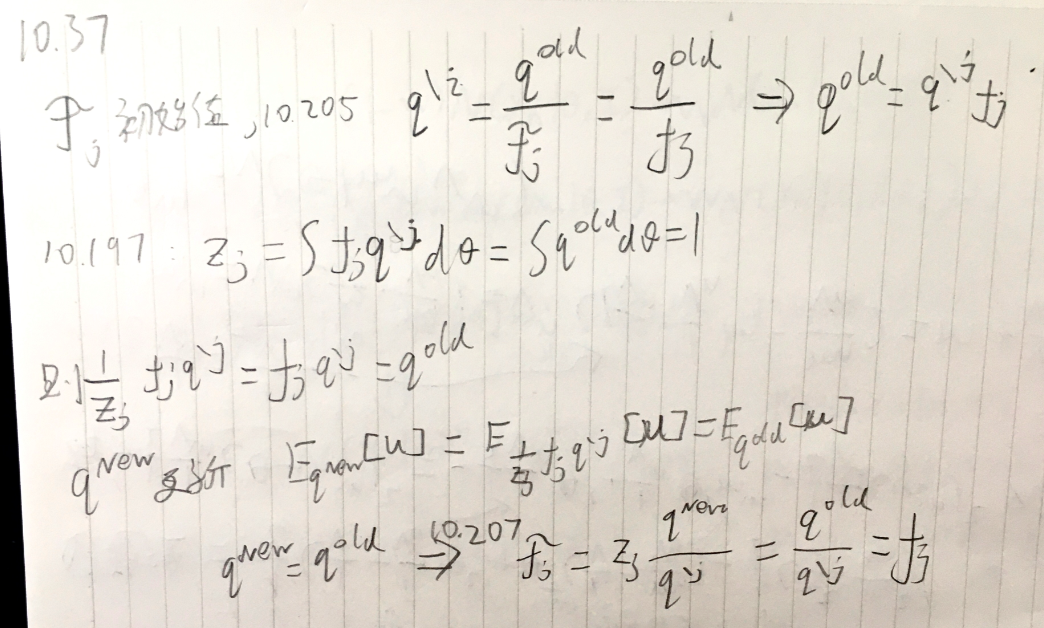 10.37
f̃_j 初始值, 10.205 q^{\i} = q^{old} / f̃_j = q^{old} / f_j ⇒ q^{old} = q^{\j} f_j
10.197: z_j = ∫ f_j q^{\j} dθ = ∫ q^{old} dθ = 1
则 1/z_j f_j q^{\j} = f_j q^{\j} = q^{old}
q^{new} 更新 E_{q^{new}}[u] = E_{1/z_j f_j q^{\j}}[u] = E_{q^{old}}[u]
q^{new} = q^{old} ⇒^{10.207} f̃_j = z_j q^{new} / q^{\j} = q^{old} / q^{\j} = f_j